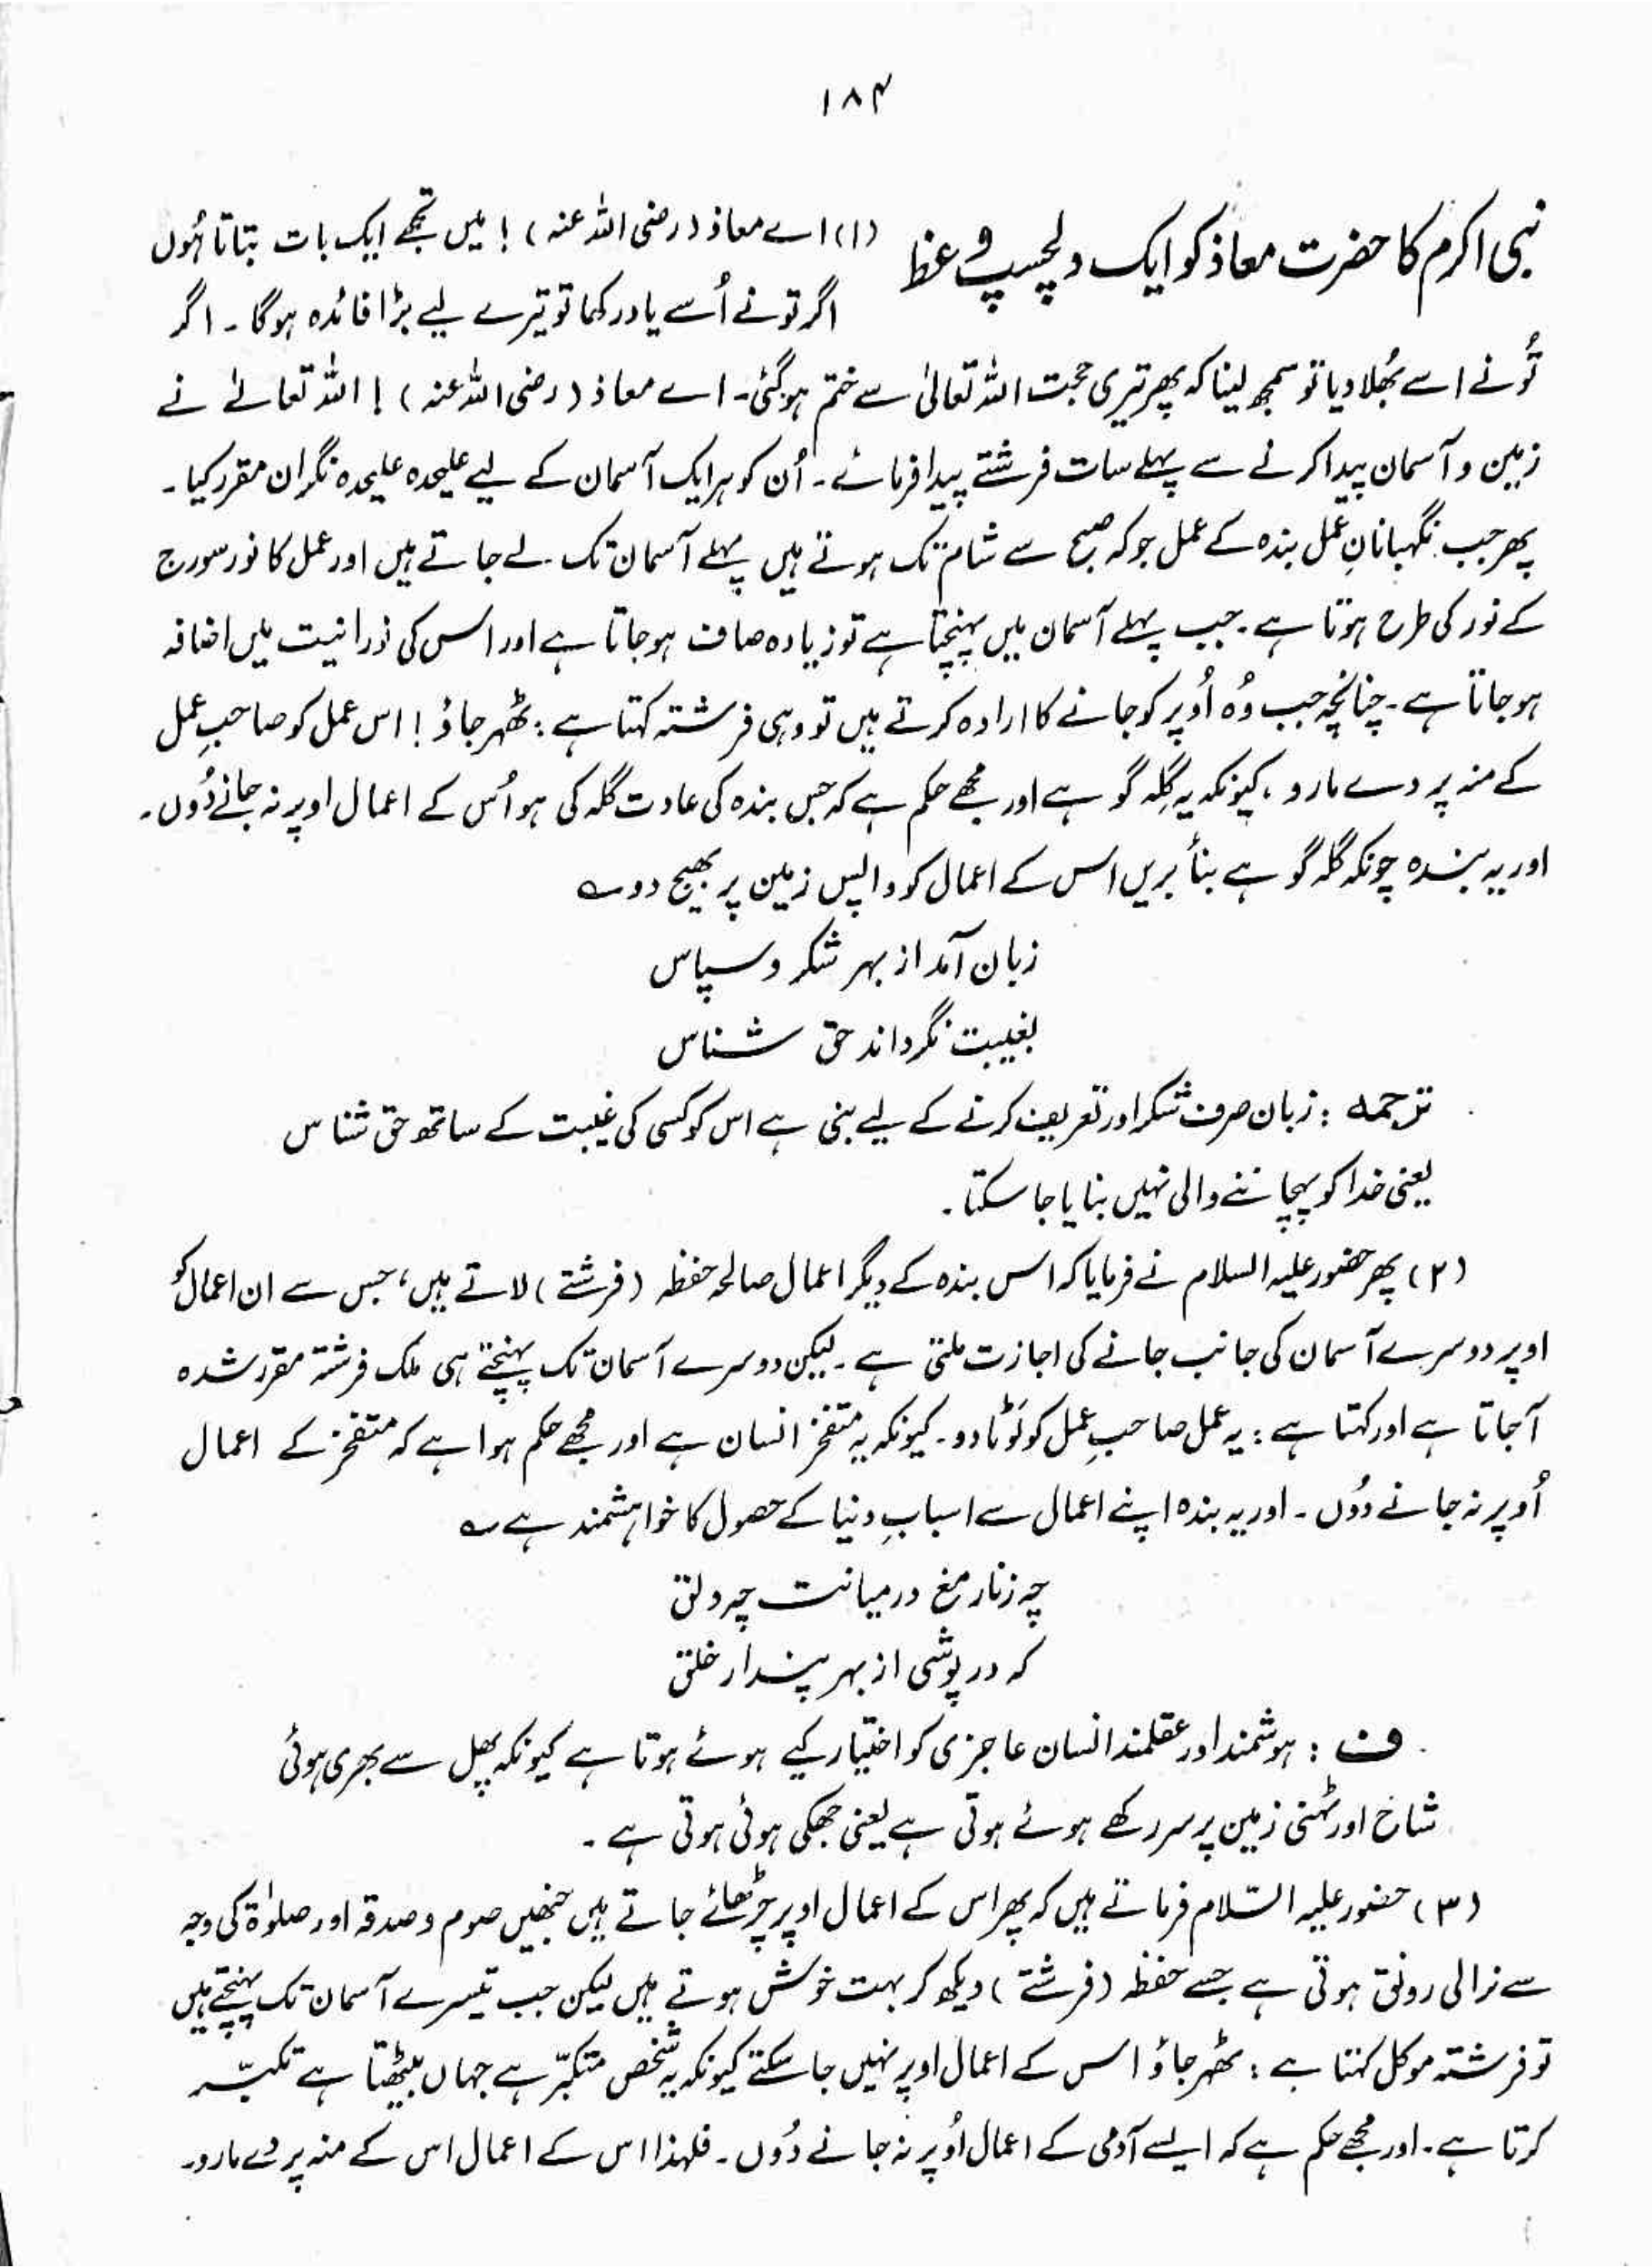 ۱۸۴
نبی اکرم کا حضرت معاذ کو ایک دلچسپ وعظ
(۱) اے معاذ (رضی اللہ عنہ) ! میں تجھے ایک بات بتاتا ہُوں
اگر تو نے اُسے یاد رکھا تو تیرے لیے بڑا فائدہ ہوگا ۔ اگر
تُو نے اسے بُھلا دیا تو سمجھ لینا کہ پھر تیری حجت اللہ تعالیٰ سے ختم ہوگئی۔ اے معاذ (رضی اللہ عنہ) ! اللہ تعالےٰ نے
زمین و آسمان پیدا کرنے سے پہلے سات فرشتے پیدا فرمائے ۔ اُن کو ہر ایک آسمان کے لیے علیحدہ علیحدہ نگران مقرر کیا ۔
پھر جب نگہبانانِ عمل بندہ کے عمل جو کہ صبح سے شام تک ہوتے ہیں پہلے آسمان تک لے جاتے ہیں اور عمل کا نور سورج
کے نور کی طرح ہوتا ہے ۔ جب پہلے آسمان میں پہنچتا ہے تو زیادہ صاف ہوجاتا ہے اور اس کی نورانیت میں اضافہ
ہو جاتا ہے ۔ چنانچہ جب وُہ اُوپر کو جانے کا ارادہ کرتے ہیں تو وہی فرشتہ کہتا ہے : ٹھہر جاؤ ! اس عمل کو صاحبِ عمل
کے منہ پر دے مارو ، کیونکہ یہ گِلہ گو ہے اور مجھے حکم ہے کہ جس بندہ کی عادت گلہ کی ہو اُس کے اعمال اوپر نہ جانے دُوں ۔
اور یہ بندہ چونکہ گلہ گو ہے بنأ بریں اس کے اعمال کو واپس زمین پر بھیج دو ؎
زبان آمد از بہر شکر و سپاس
بغیبت نگرداند حق شناس
ترجمہ : زبان صرف شکر اور تعریف کرنے کے لیے بنی ہے اس کو کسی کی غیبت کے ساتھ حق شناس
یعنی خدا کو پہچاننے والی نہیں بنایا جا سکتا ۔
(۲) پھر حضور علیہ السلام نے فرمایا کہ اس بندہ کے دیگر اعمال صالحہ حفظہ (فرشتے) لاتے ہیں ، جس سے ان اعمال کو
اوپر دوسرے آسمان کی جانب جانے کی اجازت ملتی ہے ۔ لیکن دوسرے آسمان تک پہنچتے ہی ملک فرشتہ مقرر شدہ
آجاتا ہے اور کہتا ہے : یہ عمل صاحبِ عمل کو لَوٹا دو ۔ کیونکہ یہ متفخر انسان ہے اور مجھے حکم ہوا ہے کہ متفخر کے اعمال
اُوپر نہ جانے دوُں ۔ اور یہ بندہ اپنے اعمال سے اسبابِ دنیا کے حصول کا خواہشمند ہے ؎
چہ زنار مغ درمیانت چہ دلق
کہ در پوشی از بہر پندار خلق
ف : ہوشمند اور عقلمند انسان عاجزی کو اختیار کیے ہوئے ہوتا ہے کیونکہ پھل سے بھری ہوئی
شاخ اور ٹہنی زمین پر سر رکھے ہوئے ہوتی ہے یعنی جھکی ہوئی ہوتی ہے ۔
(۳) حضور علیہ السّلام فرماتے ہیں کہ پھر اس کے اعمال اوپر چڑھائے جاتے ہیں جنھیں صوم و صدقہ اور صلوٰۃ کی وجہ
سے نرالی رونق ہوتی ہے جسے حفظہ (فرشتے) دیکھ کر بہت خوش ہوتے ہیں لیکن جب تیسرے آسمان تک پہنچتے ہیں
تو فرشتہ موکل کہتا ہے : ٹھہر جاؤ اس کے اعمال اوپر نہیں جا سکتے کیونکہ یہ شخص متکبّر ہے جہاں بیٹھتا ہے تکبّر
کرتا ہے ۔ اور مجھے حکم ہے کہ ایسے آدمی کے اعمال اُوپر نہ جانے دُوں ۔ فلہٰذا اس کے اعمال اس کے منہ پر دے مارو ۔